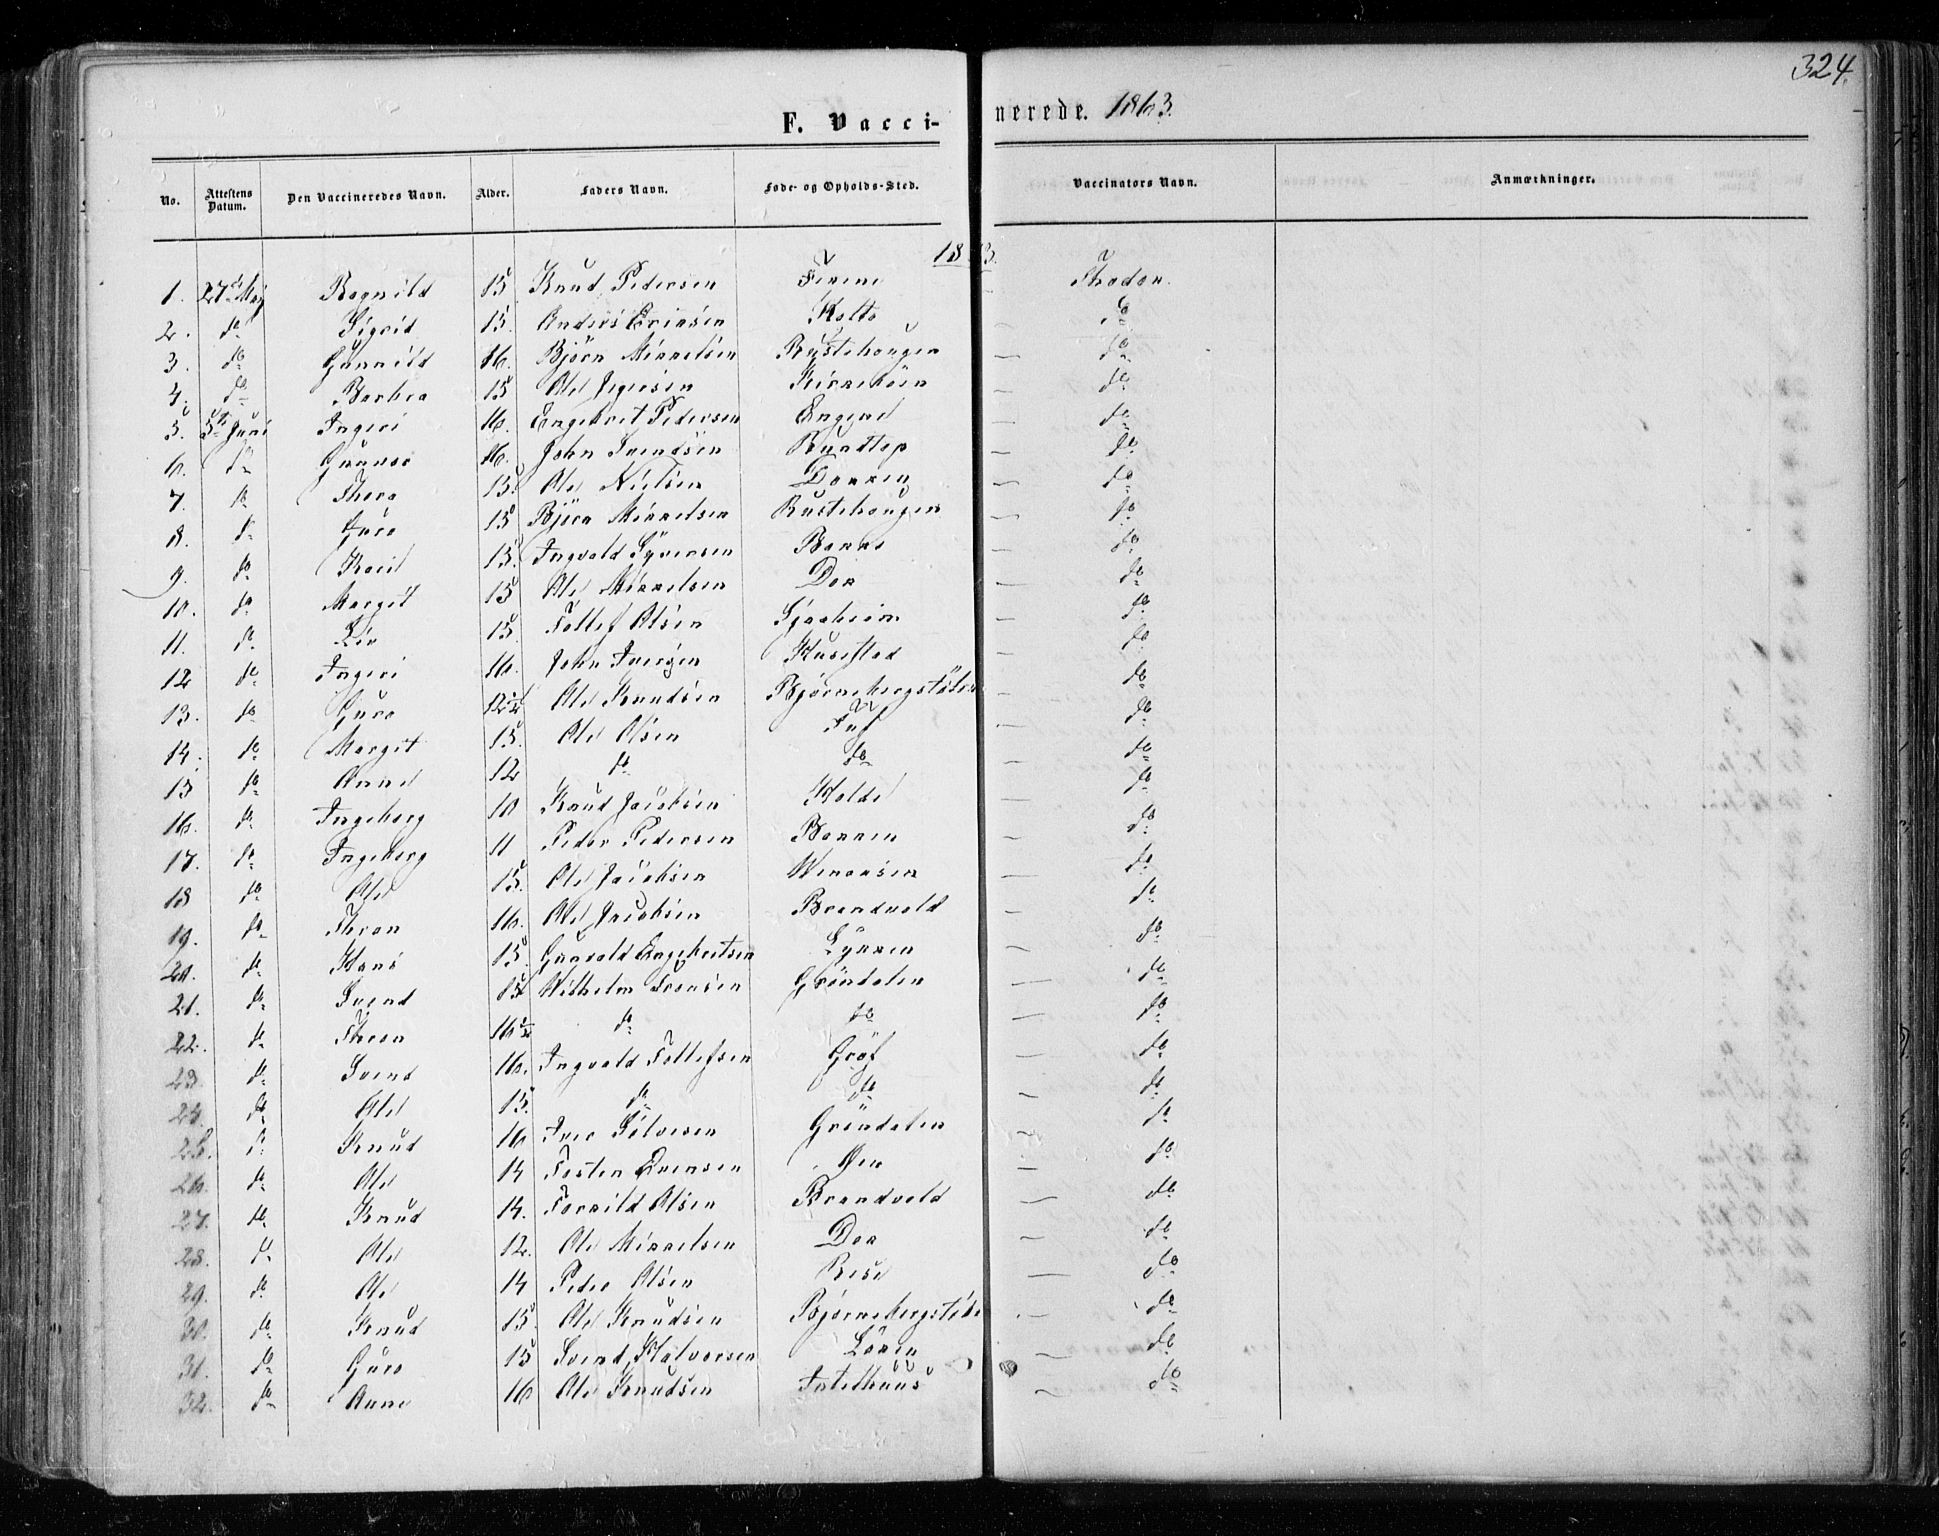 324.
F. Vacci-nerede. 1863.
No. Attestens Datum. Den Vaccineredes Navn. Alder. Faders Navn. Føde- og Opholds-Sted. Vaccinators Navn. Anmærkninger.
1863.
1. 27 Maj Ragnild 15 Knud Pedersen
2. do Sigrid 15. Anders Ericsen
3. do Gunnild 16. Björn Mikkelsen Rustehougen — do
4. do Barbra 15 Ole — do
5. 5te Juni Ingeri 16. Engebret Pedersen Engene — do
6. do Gunnor 16. John Svendsen Rundtop — do
7. do Thora 15. Ole Nielsen — do
8. do Guro 15 Björn Mikkelsen Rustehougen — do
9. do Kari 15. Ingvald Syversen — do
10. do Margit 15 Ole Mikkelsen Dok — do
11. do Liv 15. Tollef Olsen Gjerheim — do
12 do Ingeri 16. John Iversen — do
13. do Guro 12½ Ole Knudsen Bjørnebergstölen do
14. do Margit 15. Ole Olsen Tuf do
15 do Anne 12 do do — do
16. do Ingeborg 10 Knud Jacobsen Holde — do
17. do Ingeborg 11 Peder Pedersen Bakken — do
18 do Ole 15. Ole Jacobsen — do
19. do Thron 16. Ole Jacobsen Brandvold — do
20. do Hans 15. Gunvald Engebretsen Lykken — do
21. do Svend 15 Wilhelm Svensen Gröndalen — do
22. do Thron 16½ do do — do
23. do Svend 16. Ingvald Tollefsen Gröf — do
24. do Ole 15. do do — do
25. do Knud 16 Iver Sylversen Gröndalen — do
26. do Ole 14 Tosten Evensen Øen — do
27. do Knud 14. Torkild Olsen Brandvold — do
28. do Ole 12. Ole Mikkelsen Dok — do
29. do Ole 14 Peder Olsen Rese — do
30. do Knud 15. Ole Knudsen Bjørnebergstöle do
31. do Guro 15 Svend Halvorsen Lökken — do
32. do Anne 16 Ole Knudsen — do